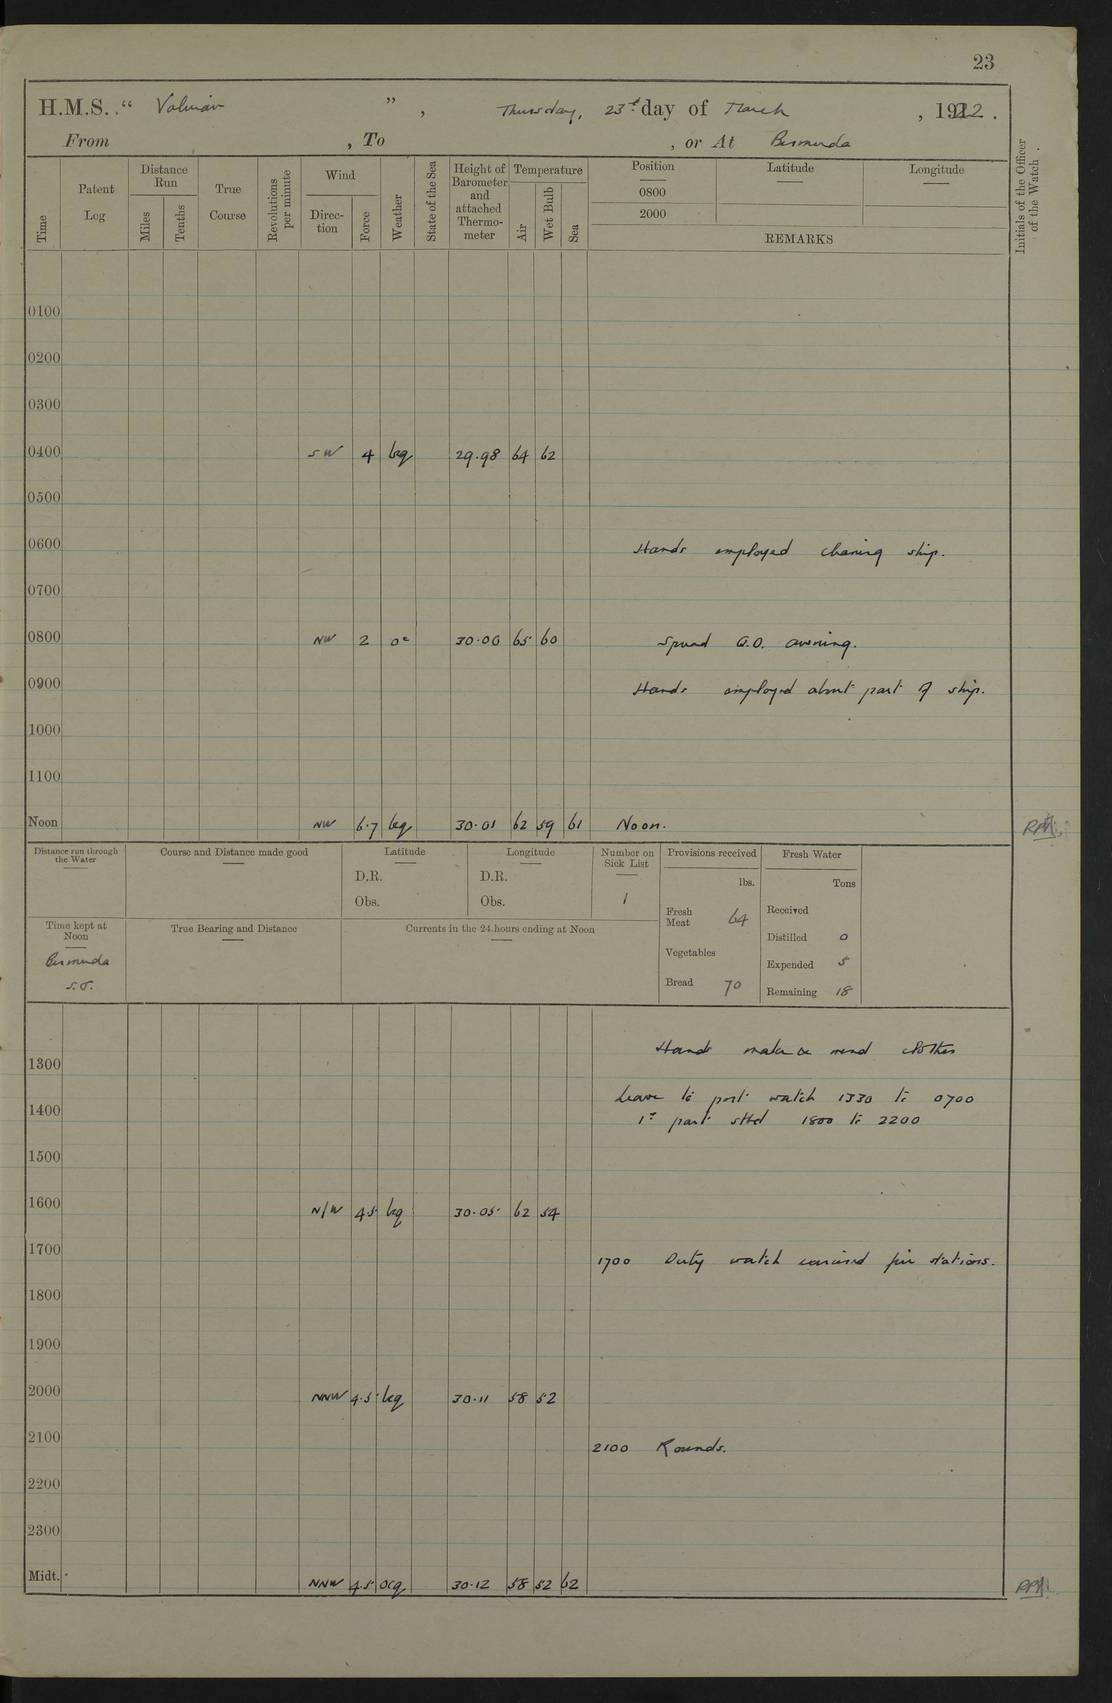 23
H.M.S. “ Valerian ” , Thursday, 23rd day of March , 1922 .
From , To , or At Bermuda
Time
Patent Log
Distance Run
Miles
Tenths
True Course
Revolutions per minute
Wind
Direc-tion
Force
Weather
State of the Sea
Height of Barometer and attached Thermo-meter
Temperature
Air
Wet Bulb
Sea
Position
0800
2000
Latitude
Longitude
REMARKS
Initials of the Officer of the Watch .
0100
0200
0300
0400 SW 4 bcq 29.98 64 62
0500
0600 Hands employed cleaning ship.
0700
0800 NW 2 oc 30.00 65 60 Spread Q.D. awning.
0900 Hands employed about part of ship.
1000
1100
Noon NW 6.7 bcq 30.01 62 59 61 Noon.
Distance run through the Water
Course and Distance made good
Latitude
D.R.
Obs.
Longitude
D.R.
Obs.
Number on Sick List
1
Provisions received
lbs.
Fresh Meat 64
Vegetables
Bread 70
Fresh Water
Tons
Received
Distilled 0
Expended 5
Remaining 18
Time kept at Noon
Bermuda
S.T.
True Bearing and Distance
Currents in the 24 hours ending at Noon
Hands make & mend clothes
1300
Leave to port watch 1330 to 0700
1400
1st part stbd 1800 to 2200
1500
1600 N/W 4.5 bcq 30.05 62 54
1700 1700 Duty watch exercised fire stations.
1800
1900
2000 NNW 4.5 bcq 30.11 58 52
2100 2100 Rounds.
2200
2300
Midt. NNW 4.5 ocq 30.12 58 52 62